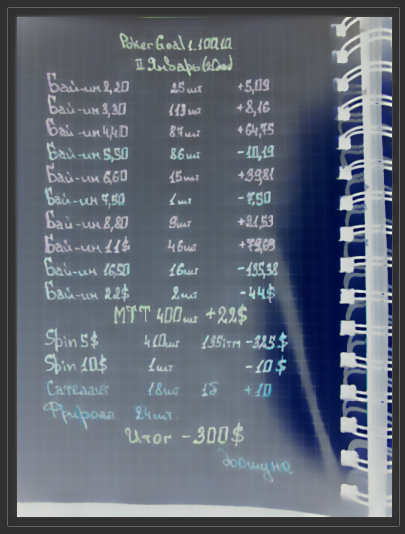 PokerGoal 1.100.10
II Январь (20
Бай-ин 2,20 25шт +5,09
Бай-ин 3,30 113шт +8,16
Бай-ин 4,40 87шт +64,75
Бай-ин 5,50 86шт -10,19
Бай-ин 6,60 15шт +39,81
Бай-ин 7,50 1шт -7,50
Бай-ин 8,80 9шт +21,53
Бай-ин 11$ 46шт +79,69
Бай-ин 16,50 16шт -135,38
Бай-ин 22$ 2шт -44$
МТТ 400шт +22$
Spin 5$ 410шт 135итм -325$
Spin 10$ 1шт -10$
Сателлит 18шт 1б +10
Фриролл 24шт.
Итог -300$